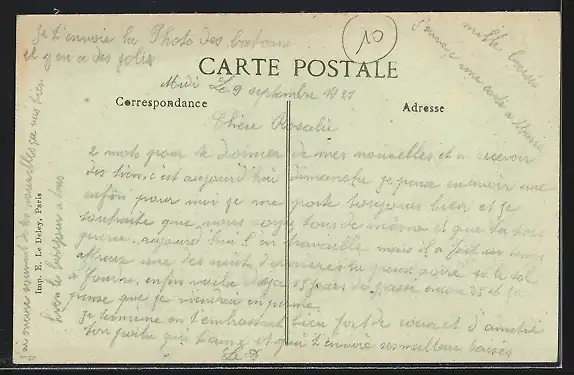 Je t'envoie la Photo des bateaux
il y en a des jolis
10
mille baisers
J'envoie une carte a Maria
CARTE POSTALE
Midi Le 9 septembre 1921
Correspondance
Adresse
Chère Rosalie
2 mots pour te donner de mes nouvelles et en recevoir
des tiens c'est aujourd'hui dimanche je pense en avoir une
enfin pour moi je me porte toujours bien et je
souhaite que vous soyez tous de même et que ta
aujourd'hui l'on travaille mais il a fait un temps
affreux une des nuits dernières tu peux croire
a enfin voila déjà 15 jours de passé encore 25 et je
pense que je viendrai en perme
Je termine en t'embrassant bien fort de coeur et d'amitié
ton qui t'aime et qui t'envoie ses meilleurs baisés
Le D
Imp. E. Le Deley, Paris
bien le bonjour a tous
j'ai encore de tes nouvelles ça va bien